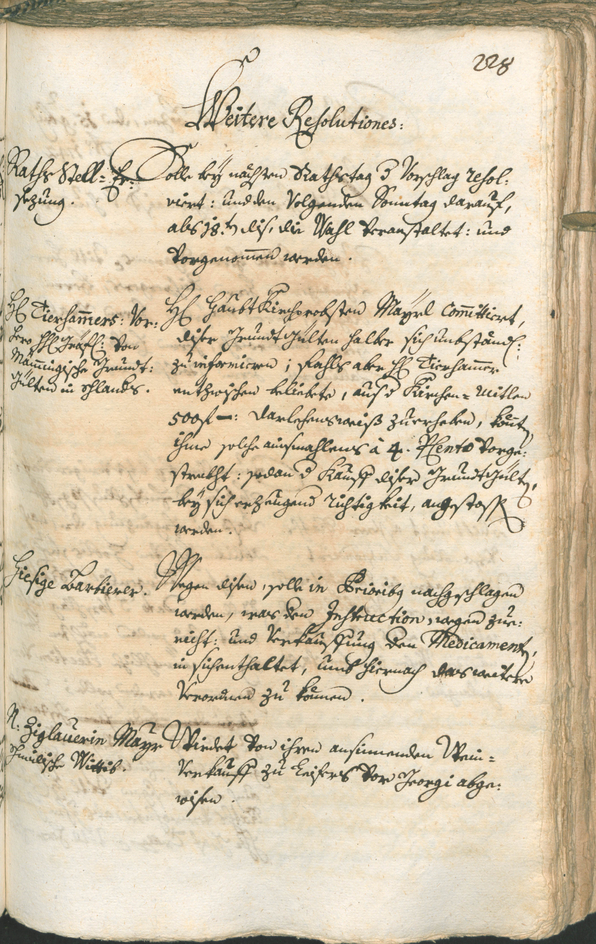 228
Weitere Resolutiones:
Raths Stell= Er-
sezung.
Solle bey nächsten Rathstag 3 Vorschlag resol-
viert: und den Volgenden Sonntag darauf,
als 18.t dis, die Wahl veranstaltet: und
Vorgenommen werden.
Hl Tierhammers: Vor-
Gräfl: Von
Mämmingische Grundt-
Gülten in Schlanders.
Hl HaubtKirchprobsten Mayrl Committiert,
diser Grundt Gülten halber sich umbständl:
zu informieren; fahls aber Hl Tierhammer
entzwischen beliebete, auß d Kirchen= Mitlen
500 f —: darlehensweiß zuerheben, könt
ihme solche à 4. PCento Vorge-
streckht: sodan d Kauff diser Grundtgült,
bey sich erzeügend Richtigkeit, angestoss
werden.
Hiesige Barbierer.
Wegen disen, solle in nachgeschlagen
werden, was den Instruction, wegen zue-
richt: und Verkauffung den Medicament,
in sich enthaltet, umb hiernach das weitere
Verordnen zu können.
N. Ziglauerin Mayr
Wittib.
Wirdet Von ihren ansinnenden Wein-
Verkauff zu Leifers Vor Georgi abge-
wisen.